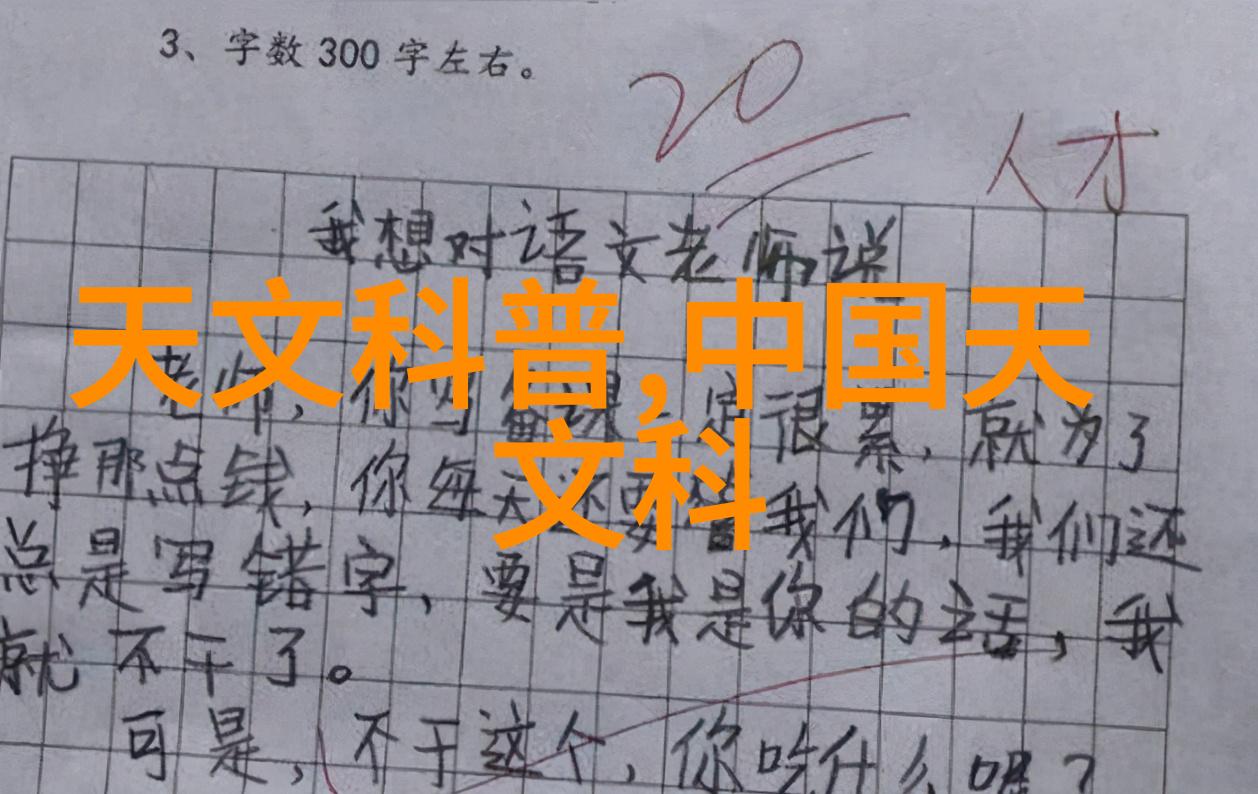 3、字数300字左右。
20
人才
我想对语文老师说
天文科普,中国天
文科
老师，你写备课一定很累，就为了
挣那点钱，你每天还要管我们，我们还
总是写错字，要是我是你的话，我
就不干了。
可是，不干这个，你吃什么呢？